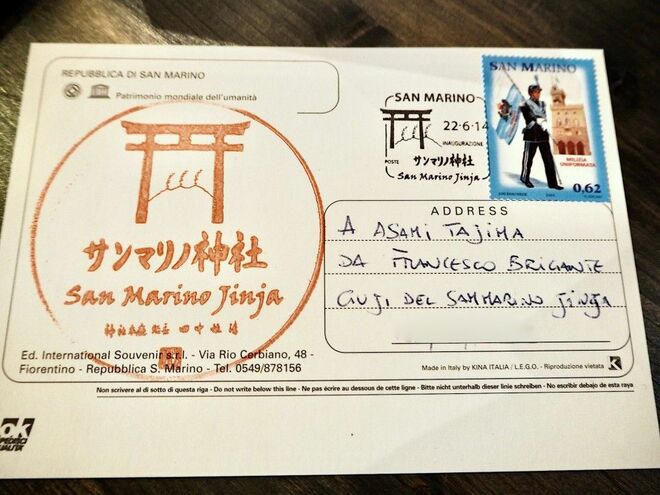 REPUBBLICA DI SAN MARINO
Patrimonio mondiale dell'umanità
サンマリノ神社
San Marino Jinja
神社本庁 総長 田中恆清
Ed. International Souvenir s.r.l. - Via Rio Cerbiano, 48 -
Fiorentino - Repubblica S. Marino - Tel. 0549/878156
SAN MARINO
22·6·14
INAUGURAZIONE
POSTE
サンマリノ神社
San Marino Jinja
SAN MARINO
MILIZIA
UNIFORMATA
0,62
ADDRESS
A ASAMI TAJIMA
DA FRANCESCO BRIGANTE
GUJI DEL SAMMARINO JINJA
Made in Italy by KINA ITALIA / L.E.G.O. - Riproduzione vietata
Non scrivere al di sotto di questa riga - Do not write below this line - Ne pas écrire au dessous de cette ligne - Bitte nicht unterhalb dieser linie schreiben - No escribir debajo de esta raya